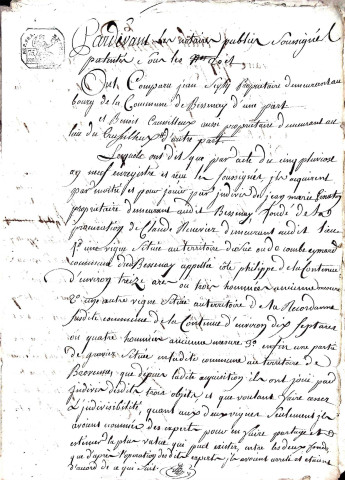 Pardevant les notaires publics soussignés
patentés sous les
Ont Comparu jean propriétaire demeurant au
bourg de la Commune de Bessenay d'une part
et Benoit aussi propriétaire demeurant au
lieu du d'autre part
Lesquels ont dit que par acte du cinq pluviose
an neuf enregistré et reçu les soussignés, ils acquirent
par moitié et pour jouir par indivis de jean marie
propriétaire demeurant audit Bessenay fondé de la
procuration de Claude demeurant audit lieu
1° une vigne située au territoire de
commune dud Bessenay appellée côte philippe de la contenue
d'environ treize ares ou trois hommées ancienne mesure
2° une autre vigne située au territoire de la
susdite commune de la Contenue d'environ dix sept ares
ou quatre hommées ancienne mesure 3° enfin une partie
de située en ladite commune au territoire de
que depuis ladite acquisition ils ont joui par
indivis desdits trois objets et que voulant faire cesser
l'indivisibilité, quant aux deux vignes seulement ils
avoient nommé des experts pour en faire partage et
estimer la plus value qui peut exister entre les deux fonds,
que d'après l'opération desdits experts ils avoient arrêté et étoient
d'accord de ce qui suit